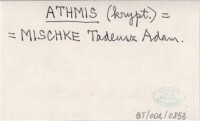 ATHMIS (krypt.) =
= MISCHKE Tadeusz Adam.
BT/002/0853